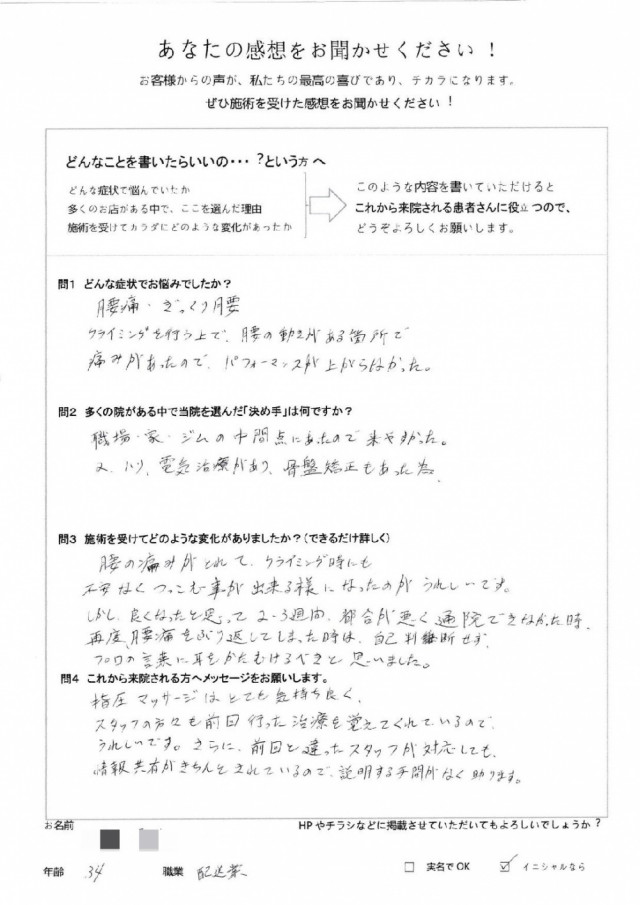 あなたの感想をお聞かせください！
お客様からの声が、私たちの最高の喜びであり、チカラになります。
ぜひ施術を受けた感想をお聞かせください！
どんなことを書いたらいいの・・・？という方へ
どんな症状で悩んでいたか
多くのお店がある中で、ここを選んだ理由
施術を受けてカラダにどのような変化があったか
このような内容を書いていただけると
これから来院される患者さんに役立つので、
どうぞよろしくお願いします。
問1 どんな症状でお悩みでしたか？
腰痛・ぎっくり腰
クライミングを行う上で、腰の動きがある箇所で
痛みがあったので、パフォーマンスが上がらなかった。
問2 多くの院がある中で当院を選んだ「決め手」は何ですか？
職場・家・ジムの中間点にあたので来やすかった。
又、ハリ、電気治療があり、骨盤矯正もあった為、
問3 施術を受けてどのような変化がありましたか？（できるだけ詳しく）
腰の痛みがとれて、クライミング時にも
不安なくつっこむ事が出来る様になったのがうれしいです。
しかし、良くなったと思って2-3週間、都合が悪く通院できなかた時、
再度、腰痛をぶり返してしまった時は、自己判断せず、
プロの言葉に耳をかたむけるべきと思いました。
問4 これから来院される方へメッセージをお願いします。
指圧マッサージはとても気持ち良く、
スタッフの方々も前回行った治療を覚えてくれているので、
うれしいです。さらに、前回と違ったスタッフが対応しても、
情報共有がきちんとされているので、説明する手間がなく助ります。
お名前
HPやチラシなどに掲載させていただいてもよろしいでしょうか？
年齢 34 職業 配送業 □ 実名でOK ☑ イニシャルなら